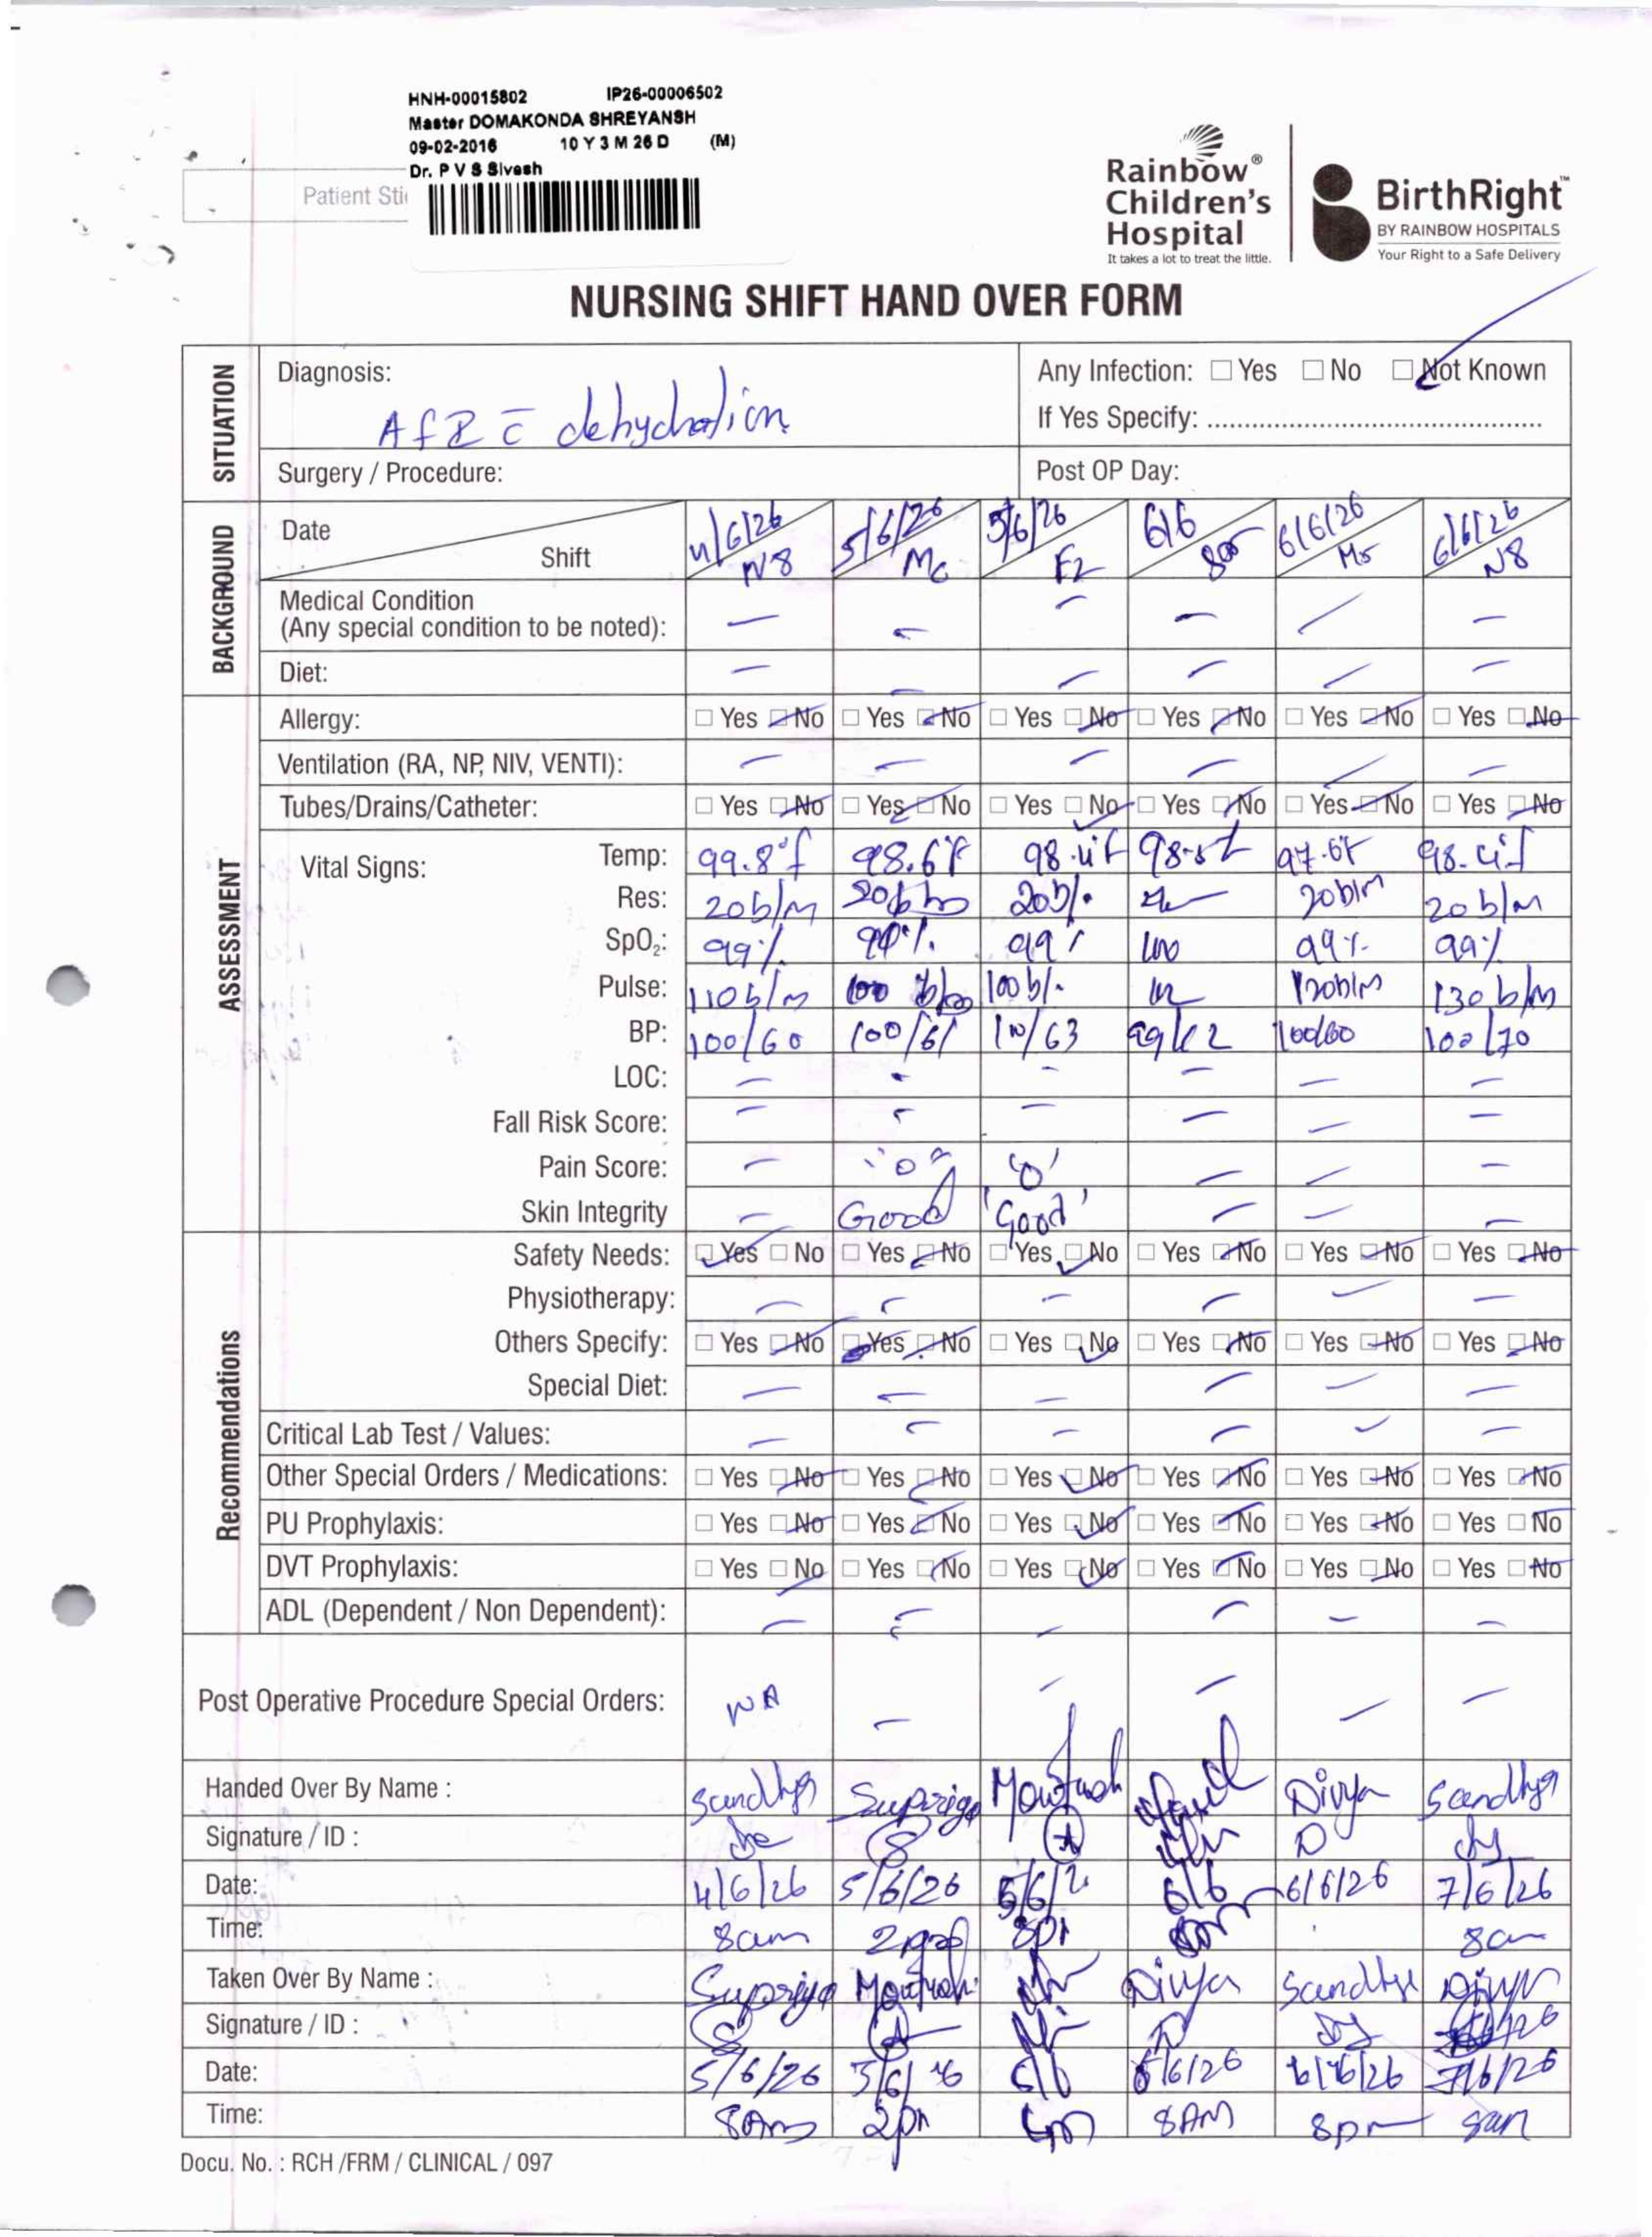 HNH-00015802 IP26-00006502
Master DOMAKONDA SHREYANSH
09-02-2016 10 Y 3 M 26 D (M)
Dr. P V S Sivesh
Patient Sti
Rainbow®
Children's
Hospital
It takes a lot to treat the little.
BirthRight™
BY RAINBOW HOSPITALS
Your Right to a Safe Delivery
NURSING SHIFT HAND OVER FORM
SITUATION
Diagnosis: Any Infection: Yes No Not Known
dehydration
If Yes Specify:
Surgery / Procedure: Post OP Day:
BACKGROUND
Date 4/6/26 5/6/26 5/6/26 6/6 6/6/26 6/6/26
Shift N8 M6 E2 M5 N8
Medical Condition
(Any special condition to be noted): — — — — — —
Diet: — — — — — —
ASSESSMENT
Allergy: Yes No Yes No Yes No Yes No Yes No Yes No
Ventilation (RA, NP, NIV, VENTI): — — — — — —
Tubes/Drains/Catheter: Yes No Yes No Yes No Yes No Yes No Yes No
Vital Signs: Temp: 99.8°f 98.6°F 98.4f 97.6F 98.4f
Res: 20b/m 20b/m 20b/. 20b/m 20b/m
SpO₂: 99% 99% 100 99% 99%
Pulse: 110b/m 100 b/m 100b/. 120b/m 130b/m
BP: 100/60 100/61 100/60 100/70
LOC: — — — — — —
Fall Risk Score: — — — — — —
Pain Score: — "0" '0' — — —
Skin Integrity — Good 'Good' — — —
Recommendations
Safety Needs: Yes No Yes No Yes No Yes No Yes No Yes No
Physiotherapy: — — — — — —
Others Specify: Yes No Yes No Yes No Yes No Yes No Yes No
Special Diet: — — — — — —
Critical Lab Test / Values: — — — — — —
Other Special Orders / Medications: Yes No Yes No Yes No Yes No Yes No Yes No
PU Prophylaxis: Yes No Yes No Yes No Yes No Yes No Yes No
DVT Prophylaxis: Yes No Yes No Yes No Yes No Yes No Yes No
ADL (Dependent / Non Dependent): — — — — — —
Post Operative Procedure Special Orders: NA — — — — —
Handed Over By Name : Sandhya Supriya Divya Sandhya
Signature / ID :
Date: 4/6/26 5/6/26 6/6 6/6/26 7/6/26
Time: 8am 8am
Taken Over By Name : Supriya Divya Sandhya
Signature / ID :
Date: 5/6/26 6/6/26 6/6/26 7/6/26
Time: 8Am 2pm 8AM 8pm
Docu. No. : RCH /FRM / CLINICAL / 097